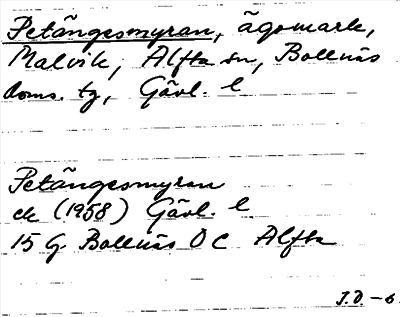 Petängesmyran, ägomark,
Malvik, Alfta sn, Bollnäs
doms. tg, Gävl. l
Petängesmyran
ek (1958) Gävl. l
15 G Bollnäs OC Alfta
J.D. -6